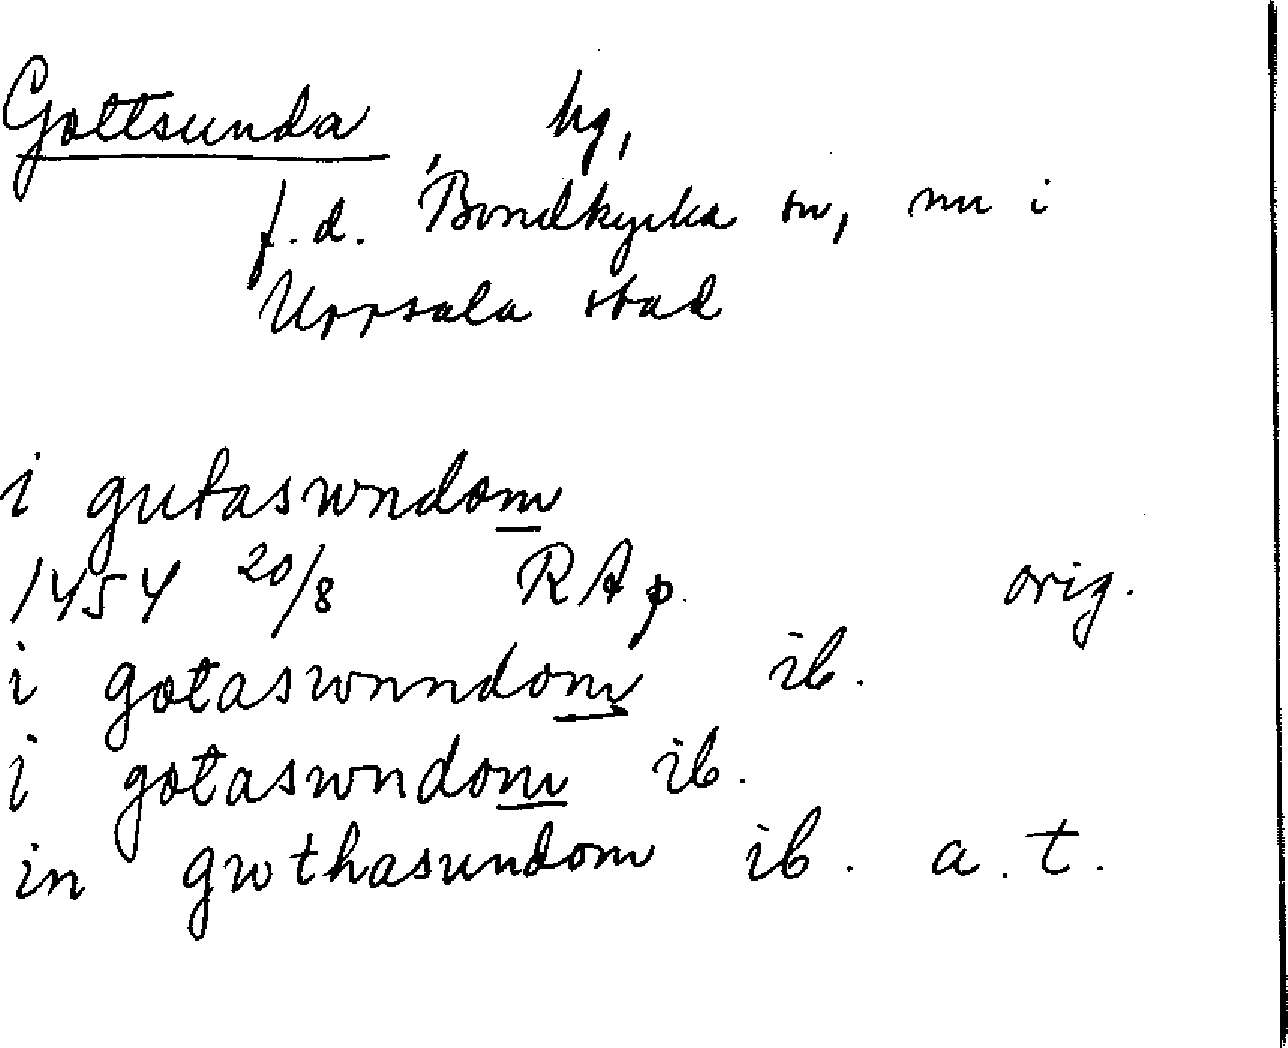 Gottsunda hg,
f.d. Bondkyrka sn, nu i
Uppsala stad
i gutaswndom
1454 20/8 RAp. orig.
i gotaswnndom ib.
i gotaswndom ib.
in gwthasundom ib. a.t.